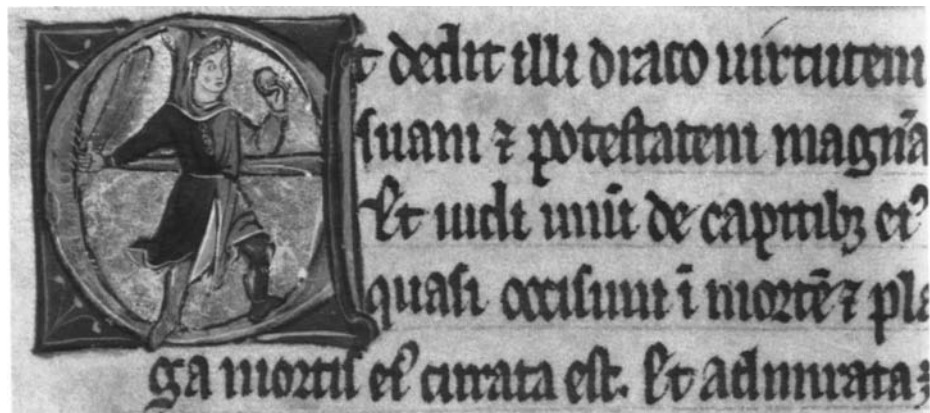 Et dedit illi draco uirtutem
suam ⁊ potestatem magnā
Et uidi unū de capitibꝫ ei᷒
quasi occisum ī mortē ⁊ pla
ga mortis ei᷒ curata est. Et admirata ꝫ